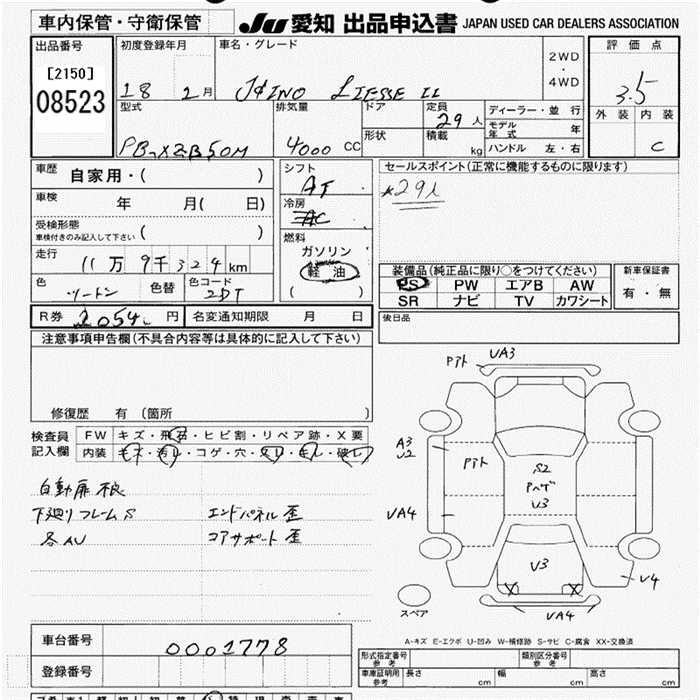 車内保管・守衛保管
JU 愛知 出品申込書 JAPAN USED CAR DEALERS ASSOCIATION
出品番号
[2150]
08523
初度登録年月
18 2月
車名・グレード
HINO LIESSE II
2WD
・
4WD
評価点
3.5
外装 内装
C
型式
PB-XZB50M
排気量
4000 CC
ドア
形状
定員
29人
積載
kg
ディーラー・並行
モデル年式 年
ハンドル 左・右
車歴
自家用・( )
車検 年 月( 日)
受検形態
車検付きのみ記入して下さい ( )
走行 11万9千324km
色 ツートン 色替 色コード 2DT
シフト
AT
冷房
AC
燃料
ガソリン
軽油
( )
セールスポイント(正常に機能するものに限ります)
*29人
装備品(純正品に限り○をつけてください)
PS PW エアB AW
SR ナビ TV カワシート
新車保証書
有・無
R券 円 名変通知期限 月 日
後日品
注意事項申告欄(不具合内容等は具体的に記入して下さい)
修復歴 有 (箇所 )
検査員記入欄
FW キズ・飛石・ヒビ割・リペア跡・X要
内装 キズ・汚レ・コゲ・穴・スレ・ハガレ・破レ
自動扉不良
下廻りフレームS エンドパネル歪
各AU コアサポート歪
Pアト UA3
A3
U2
Pアト
S2
Pハゲ
U3
UA4
U3
X X
U4
UA4
スペア
A-キズ E-エクボ U-凹み W-補修跡 S-サビ C-腐食 XX-交換済
車台番号 0001778
登録番号
形式指定番号 参考 類別区分番号 参考
車庫証明用 参考 長さ cm 幅 cm 高さ cm